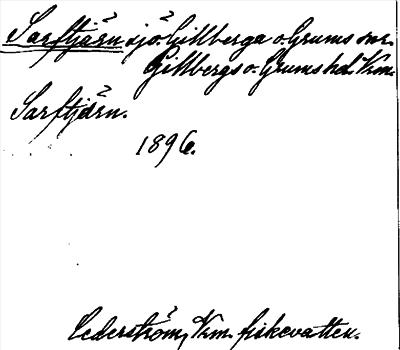 Sarftjärn sjö. Gillberga o. Grums snr.
Gillbergs o. Grums hd. Vrm.
Sarftjärn.
1896.
Cederström, Vrm. fiskevatten.